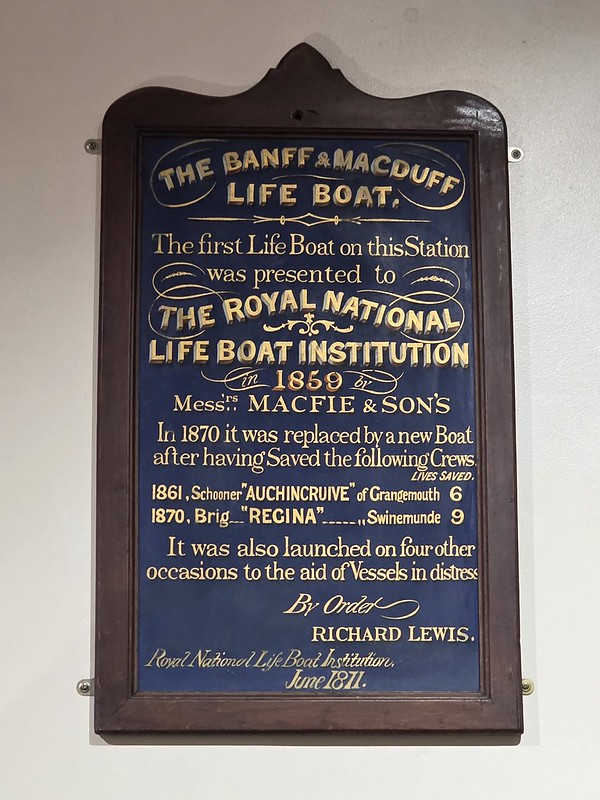 THE BANFF & MACDUFF
LIFE BOAT.
The first Life Boat on this Station
was presented to
THE ROYAL NATIONAL
LIFE BOAT INSTITUTION
in 1859 by
Mess:rs MACFIE & SON'S
In 1870 it was replaced by a new Boat
after having Saved the following Crews.
LIVES SAVED.
1861, Schooner "AUCHINCRUIVE" of Grangemouth 6
1870, Brig "REGINA" „ Swinemunde 9
It was also launched on four other
occasions to the aid of Vessels in distress
By Order
RICHARD LEWIS.
Royal National Life Boat Institution.
June 1877.